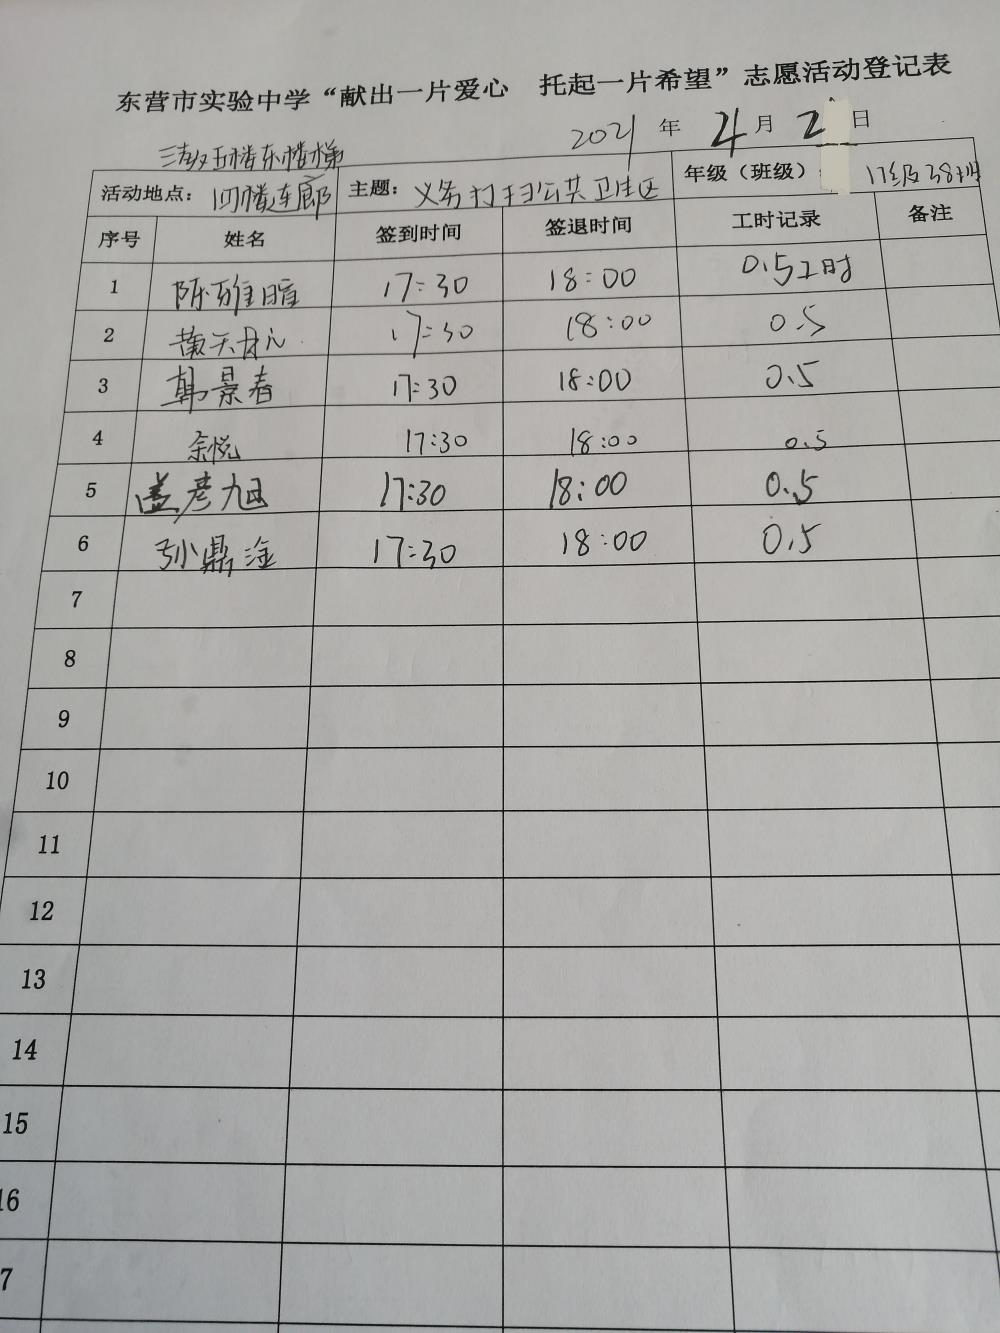 东营市实验中学“献出一片爱心 托起一片希望”志愿活动登记表
2021 年 4 月 2 日
三教五楼东楼梯
活动地点： 四楼连廊 主题： 义务打扫公共卫生区 年级（班级） 17级38班
序号 姓名 签到时间 签退时间 工时记录 备注
1 陈雅暄 17:30 18:00 0.5工时
2 17:30 18:00 0.5
3 韩景春 17:30 18:00 0.5
4 余悦 17:30 18:00 0.5
5 盖彦旭 17:30 18:00 0.5
6 孙鼎淦 17:30 18:00 0.5
7
8
9
10
11
12
13
14
15
16
7